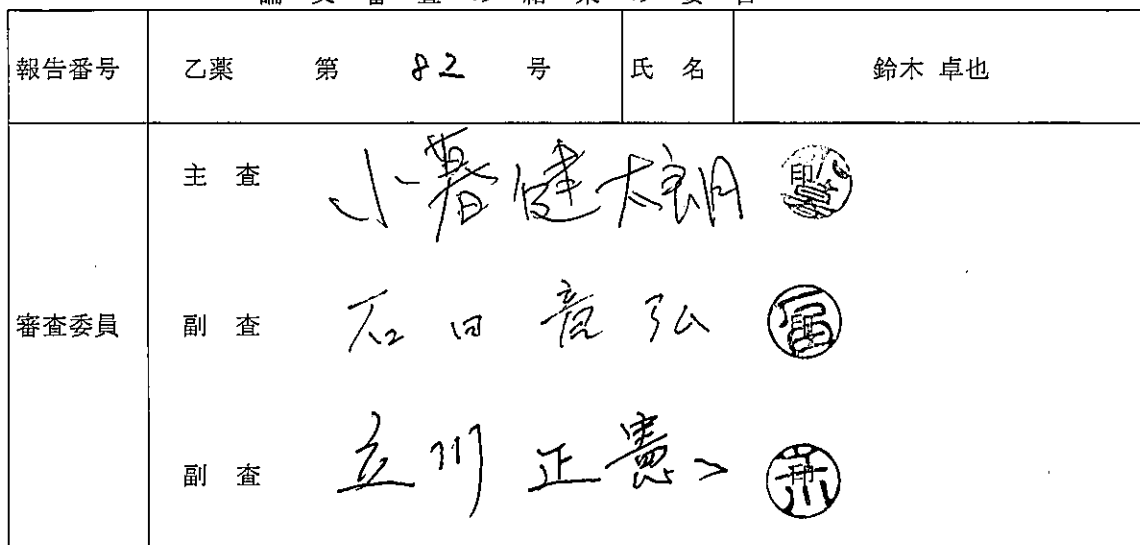 論文審査の結果の要旨
報告番号 乙薬 第 82 号 氏名 鈴木 卓也
主査 小暮健太朗
審査委員 副査 石田竜弘
副査 立川正憲